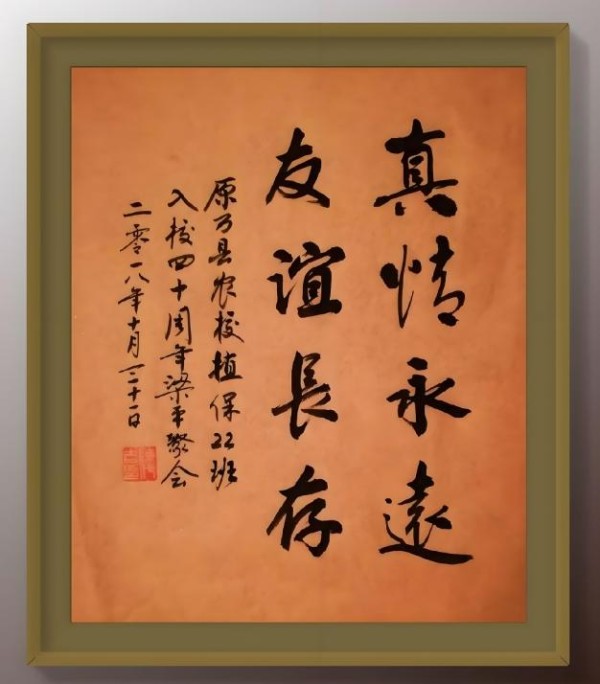 真情永遠
友谊長存
原万县农校植保22班
入校四十周年梁平聚会
二零一八年十月三十一日